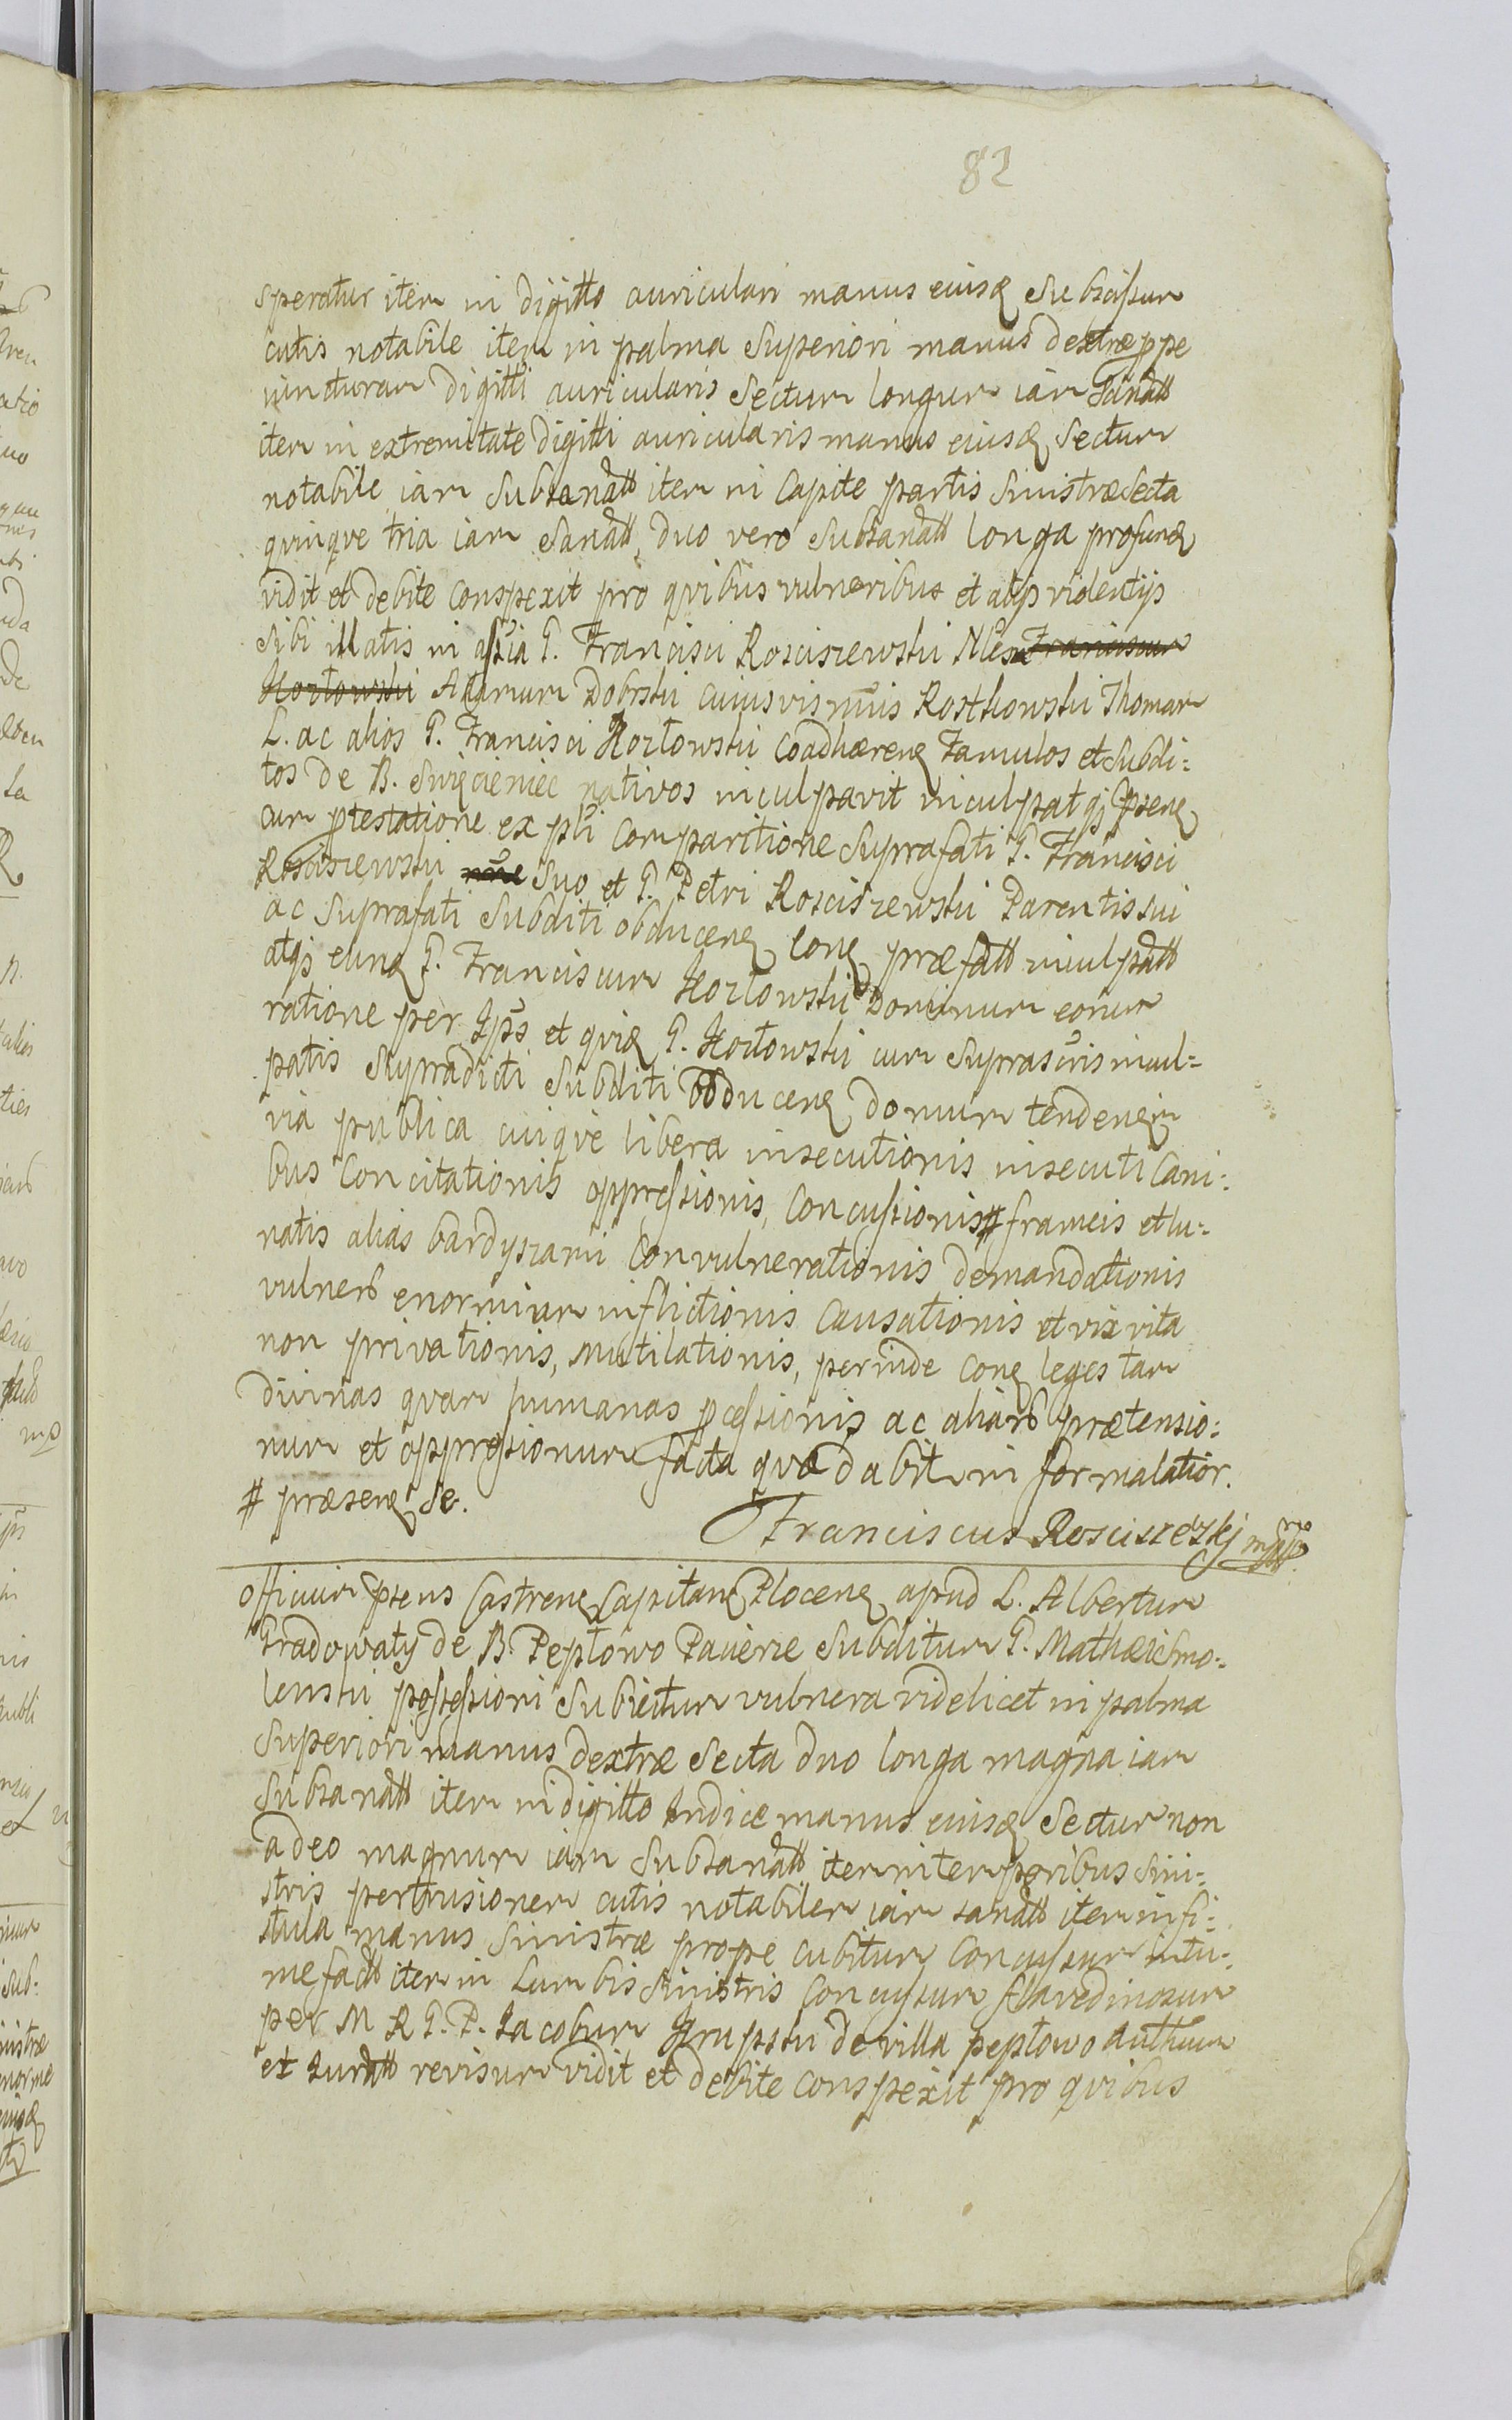 82
speratur item in digitto auriculari manus eiusq subscissum
cutis notabile item in palma superiori manus dextræ ppe
iuncturam digitti auricularis sectum longum iam sanatt
item in extremitate digitti auricularis manus eiusq sectum
notabile iam subsanatt item in capite partis sinistræ secta
qvinqve tria iam sanatt, duo vero subsanatt longa profunq
vidit et debite conspexit pro qvibus vulneribus et alijs violentijs
sibi illatis in assia G. Francisci Rosciszewski Nles Franciscum
Kozłowski Adamum Dobrski cuiusvis nuis Rostkowski Thomam
L. ac alios G. Francisci Kozłowski coadhærenq famulos et subdi:
tos de B. Swięcieniec nativos inculpavit inculpatqj psenq
cum ptestatione ex pti comparitione suprafati G. Francisci
Rosciszewski nne suo et G. Petri Rosciszewski Parentis sui
ac suprafati subditi obducenq conq præfatt inculpatt
atqj eunq G. Franciscum Kozłowski Dominum eorum
ratione per Ips et qvia G. Kozłowski cum suprascris incul=
patis supradicti subditi obducenq domum tendenq in
via publica cuiqve libera insecutionis insecuti cani:
bus concitationis oppressionis, concussionis # frameis et lu:
natis alias bardyszami convulnerationis demandationis
vulnerɓ enormium inflictionis causationis et vix vita
non privationis, mutilationis, perinde conq leges tam
divinas qvam humanas pcessionis ac aliarɓ prætensio:
num et oppressionum facta qvæ dabit in formalatior.
# præsenq se.
Franciscus Rosciszewskj mppa
Officium psens Castrenq Capitanq Plocenq apud L. Albertum
Gradowaty de B. Pepłowo Pawerze subditum G. Mathæi Smo:
lenski possessioni subiectum vulnera videlicet in palma
superiori manus dextræ secta duo longa magna iam
subsanatt item in digitto Indice manus eiusq sectum non
adeo magnum iam subsanatt item in temporibus sini:
stris pertrusionem cutis notabilem iam sanatt item in fi:
stula manus sinistræ prope cubitum concussum intu:
mefactt item in Lumbis sinistris concussum flavedinosum
per M R G. P. Jacobum Krupski de villa pepłowo authum
et Juratt revisum vidit et debite conspexit pro qvibus